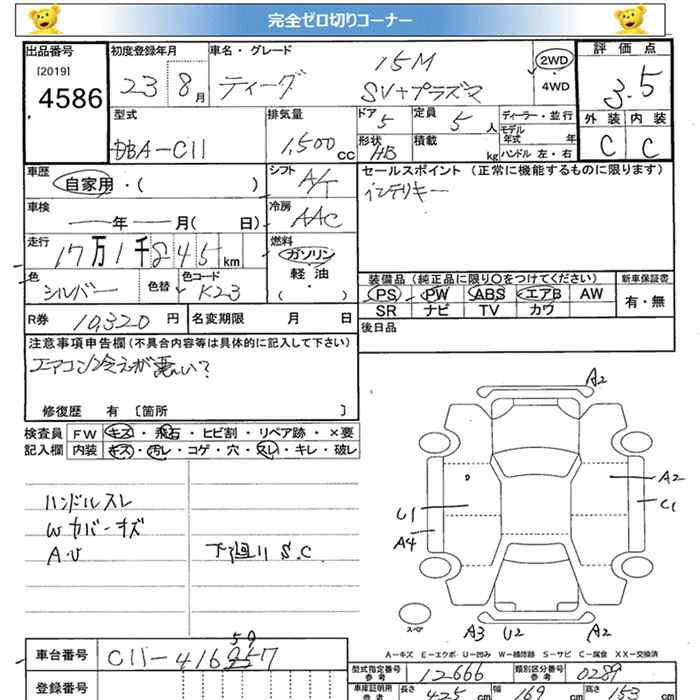 完全ゼロ切りコーナー
出品番号 初度登録年月 車名・グレード 評価点
[2019] 4586
23 8月 ティーダ 15M SV+プラズマ
2WD ・ 4WD
3.5
型式 排気量 ドア 定員 ディーラー・並行 外装 内装
DBA-C11 1,500cc 5 5人 モデル年式 年
形状 HB 積載 kg ハンドル 左・右 C C
車歴 自家用・( ) シフト A/T セールスポイント (正常に機能するものに限ります)
インテリキー
車検 年 月( 日) 冷房 AAC
走行 17万1千845km 燃料 ガソリン
軽・油
・( )
色 シルバー 色替 色コード K23
装備品 (純正品に限り○をつけてください) 新車保証書
PS PW ABS エアB AW 有・無
SR ナビ TV カワ
R券 10,320円 名変期限 月 日
後日品
注意事項申告欄(不具合内容等は具体的に記入して下さい)
エアコン冷えが悪い?
修復歴 有 [箇所 ]
検査員 FW キズ・飛石・ヒビ割・リペア跡・×要
記入欄 内装 キズ・汚レ・コゲ・穴・スレ・キレ・破レ
ハンドルスレ
Wカバーキズ
A・U 下廻りS.C.
A2
A2
U1 C1
A4
スペア
A3 U2 A2
A-キズ E-エクボ U-凹み W-補修跡 S-サビ C-腐食 XX-交換済
車台番号 C11-416 59 257
型式指定番号 参考 12666 類別区分番号 参考 0289
登録番号
車庫証明用 参考 長さ 425cm 幅 169cm 高さ 153cm